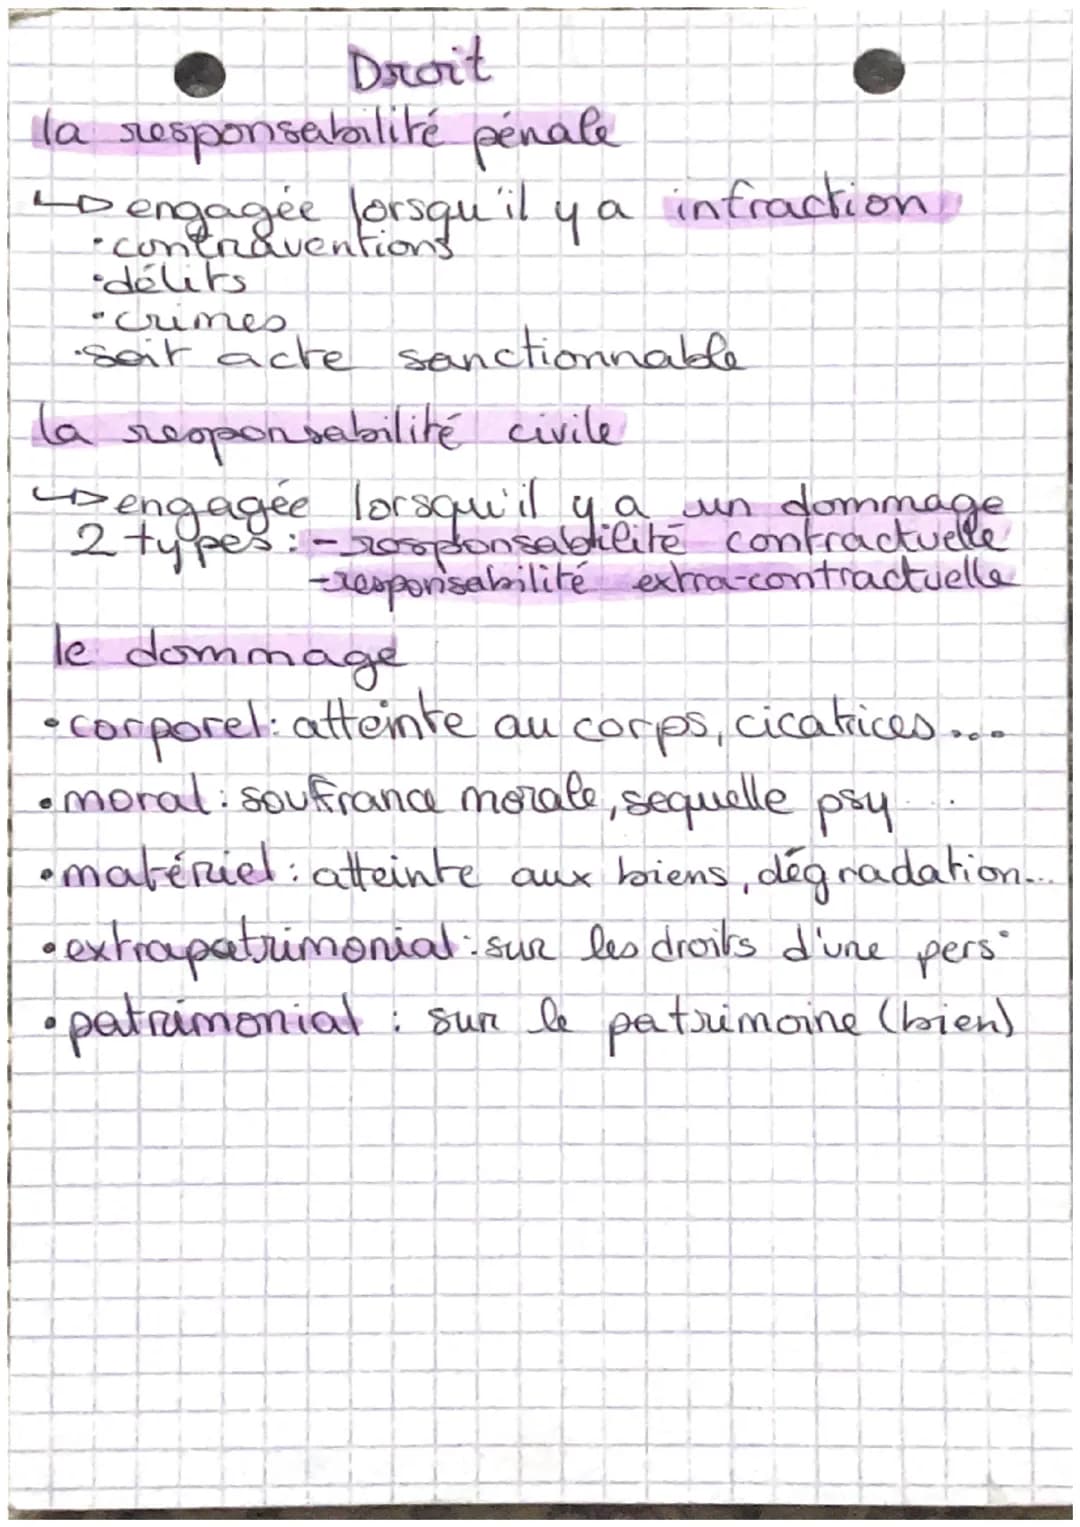 Droit
la responsabilité pénale
↳ engagée lorsqu'il y a infraction
• contraventions
• délits
• crimes
• soit acte sanctionnable
la responsabilité civile
↳ engagée lorsqu'il y a un dommage
2 types : - responsabilité contractuelle
- responsabilité extra-contractuelle
le dommage
• corporel : atteinte au corps, cicatrices ...
• moral : souffrance morale, sequelle psy ...
• matériel : atteinte aux biens, dégradation...
• extrapatrimonial : sur les droits d'une pers°
• patrimonial : sur le patrimoine (bien)